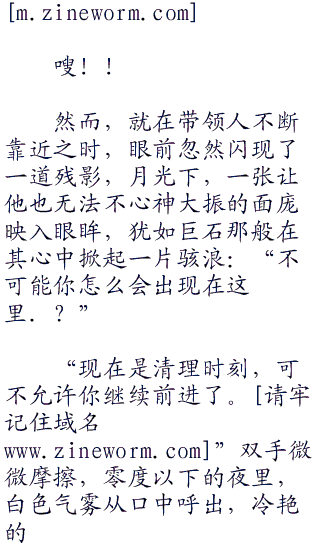 [m.zineworm.com]
嗖！！
然而，就在带领人不断
靠近之时，眼前忽然闪现了
一道残影，月光下，一张让
他也无法不心神大振的面庞
映入眼眸，犹如巨石那般在
其心中掀起一片骇浪：“不
可能你怎么会出现在这
里．？”
“现在是清理时刻，可
不允许你继续前进了。[请牢
记住域名
www.zineworm.com]”双手微
微摩擦，零度以下的夜里，
白色气雾从口中呼出，冷艳
的